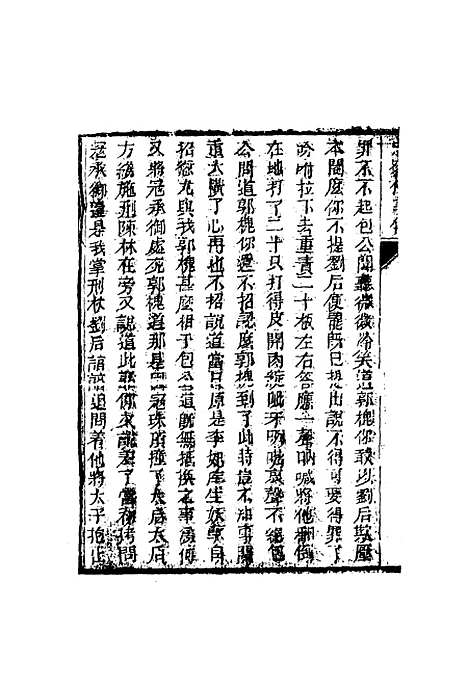 罪不不起包公聞聽微微冷笑道郭槐你敢以劉后欺壓
本閣麼你不提劉后便罷既已提出說不得可要得罪了
吩咐拉下去重責二十板左右答應一聲吶喊將他翻倒
在地打了二十只打得皮開肉綻呲牙咧嘴哀聲不絕包
公問道郭槐你還不招認麼郭槐到了此時豈不知事關
重大橫了心再也不招說道當日原是李妃產生妖孽自
招愆尤與我郭槐甚麼相干包公道既無抵換之事為何
又將寇承御處死郭槐道那是因寇珠頂撞了太后太后
方纔施刑陳林在旁又說道此話你又說差了當初拷問
寇承御還是我掌刑杖劉后諄諄追問着他將太子抱出